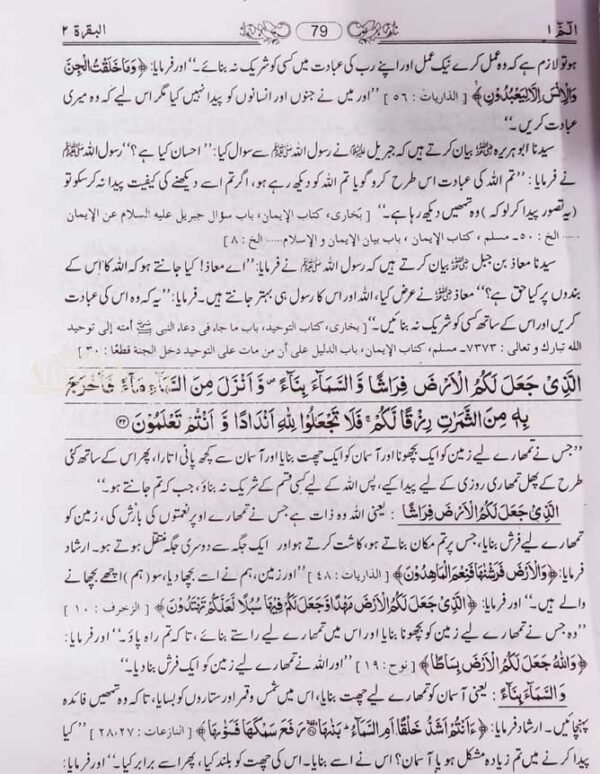 الٓمّٓ ۱ 79 البقرة ۲
ہو تو لازم ہے کہ وہ عمل کرے نیک عمل اور اپنے رب کی عبادت میں کسی کو شریک نہ بنائے۔‘‘ اور فرمایا: ﴿وَمَا خَلَقْتُ الْجِنَّ
وَالْاِنْسَ اِلَّا لِيَعْبُدُوْنِ﴾ [الذاریات : ۵٦] ’’اور میں نے جنوں اور انسانوں کو پیدا نہیں کیا مگر اس لیے کہ وہ میری
عبادت کریں۔‘‘
سیدنا ابو ہریرہ رضی اللہ عنہ بیان کرتے ہیں کہ جبریل نے رسول اللہ ﷺ سے سوال کیا: ’’احسان کیا ہے؟‘‘ رسول اللہ ﷺ
نے فرمایا: ’’تم اللہ کی عبادت اس طرح کرو گویا تم اللہ کو دیکھ رہے ہو، اگر تم اسے دیکھنے کی کیفیت پیدا نہ کر سکو تو
(یہ تصور پیدا کر لو کہ) وہ تمھیں دیکھ رہا ہے۔‘‘ [بُخاری، کتاب الإیمان، باب سؤال جبریل علیہ السلام عن الإیمان
...... الخ : ۵۰۔ مسلم ، کتاب الإیمان ، باب بیان الإیمان و الإسلام ..... الخ : ۸]
سیدنا معاذ بن جبل رضی اللہ عنہ بیان کرتے ہیں کہ رسول اللہ ﷺ نے فرمایا: ’’اے معاذ! کیا جانتے ہو کہ اللہ کا اس کے
بندوں پر کیا حق ہے؟‘‘ معاذ رضی اللہ عنہ نے عرض کیا، اللہ اور اس کا رسول ہی بہتر جانتے ہیں۔ فرمایا: ’’یہ کہ وہ اس کی عبادت
کریں اور اس کے ساتھ کسی کو شریک نہ بنائیں۔‘‘ [بخاری، کتاب التوحید، باب ما جاء فی دعاء النبی ﷺ أمتہ إلی توحید
اللہ تبارک و تعالی : ۷۳۷۳۔ مسلم، کتاب الإیمان، باب الدلیل علی أن من مات علی التوحید دخل الجنۃ قطعًا : ۳۰]
الَّذِيْ جَعَلَ لَكُمُ الْاَرْضَ فِرَاشًا وَّ السَّمَآءَ بِنَآءً ۪ وَّ اَنْزَلَ مِنَ السَّمَآءِ مَآءً فَاَخْرَجَ
بِهٖ مِنَ الثَّمَرٰتِ رِزْقًا لَّكُمْ ۚ فَلَا تَجْعَلُوْا لِلّٰهِ اَنْدَادًا وَّ اَنْتُمْ تَعْلَمُوْنَ ﴿۲۲﴾
’’جس نے تمھارے لیے زمین کو ایک بچھونا اور آسمان کو ایک چھت بنایا اور آسمان سے کچھ پانی اتارا، پھر اس کے ساتھ کئی
طرح کے پھل تمھاری روزی کے لیے پیدا کیے، پس اللہ کے لیے کسی قسم کے شریک نہ بناؤ، جب کہ تم جانتے ہو۔‘‘
الَّذِيْ جَعَلَ لَكُمُ الْاَرْضَ فِرَاشًا : یعنی اللہ وہ ذات ہے جس نے تمھارے اوپر نعمتوں کی بارش کی، زمین کو
تمھارے لیے فرش بنایا، جس پر تم مکان بناتے ہو، کاشت کرتے ہو اور ایک جگہ سے دوسری جگہ منتقل ہوتے ہو۔ ارشاد
فرمایا: ﴿وَالْاَرْضَ فَرَشْنٰهَا فَنِعْمَ الْمَاهِدُوْنَ﴾ [الذاریات : ۴۸] ’’اور زمین، ہم نے اسے بچھا دیا، سو (ہم) اچھے بچھانے
والے ہیں۔‘‘ اور فرمایا: ﴿الَّذِيْ جَعَلَ لَكُمُ الْاَرْضَ مَهْدًا وَّجَعَلَ لَكُمْ فِيْهَا سُبُلًا لَّعَلَّكُمْ تَهْتَدُوْنَ﴾ [الزخرف : ۱۰]
’’وہ جس نے تمھارے لیے زمین کو بچھونا بنایا اور اس میں تمھارے لیے راستے بنائے، تاکہ تم راہ پاؤ۔‘‘ اور فرمایا:
﴿وَاللّٰهُ جَعَلَ لَكُمُ الْاَرْضَ بِسَاطًا﴾ [نوح : ۱۹] ’’اور اللہ نے تمھارے لیے زمین کو ایک فرش بنا دیا۔‘‘
وَّالسَّمَآءَ بِنَآءً : یعنی آسمان کو تمھارے لیے چھت بنایا، اس میں شمس و قمر اور ستاروں کو بسایا، تاکہ وہ تمھیں فائدہ
پہنچائیں۔ ارشاد فرمایا: ﴿ءَاَنْتُمْ اَشَدُّ خَلْقًا اَمِ السَّمَآءُ ۭ بَنٰىهَا ۝ رَفَعَ سَمْكَهَا فَسَوّٰىهَا﴾ [النازعات : ۲۸،۲۷] ’’کیا
پیدا کرنے میں تم زیادہ مشکل ہو یا آسمان؟ اس نے اسے بنایا۔ اس کی چھت کو بلند کیا، پھر اسے برابر کیا۔‘‘ اور فرمایا: